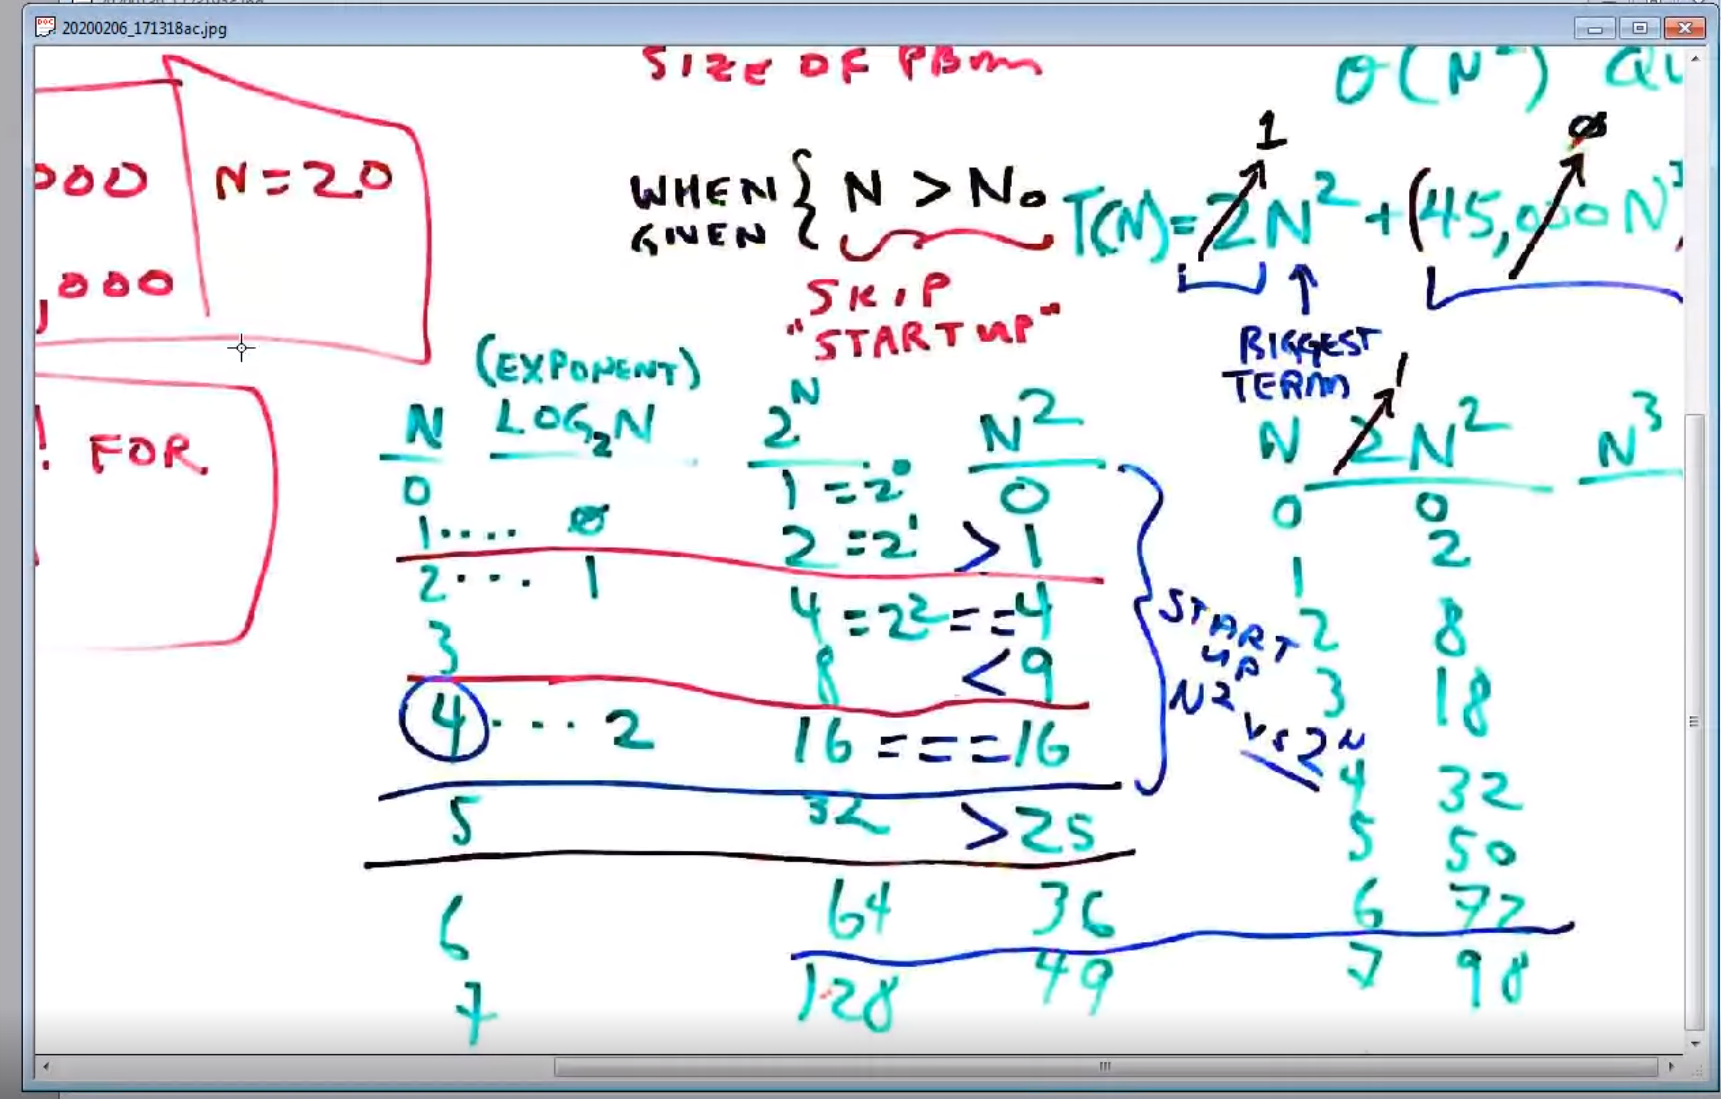 20200206_171318ac.jpg
SIZE OF PBM
O(N²) QU
000 N=20
,000
WHEN GIVEN { N > N₀
SKIP
"STARTUP"
1
0
T(N)=2N²+(45,000N)
BIGGEST
TERM
! FOR
(EXPONENT)
N LOG₂N 2^N N²
0 1=2⁰ 0
1.... 0 2=2¹ > 1
2... 1 4=2²==4
3 8 < 9
4...2 16===16
5 32 >25
6 64 36
7 128 49
START
UP
N2
VS 2N
1
N 2N² N³
0 0
1 2
2 8
3 18
4 32
5 50
6 72
7 98